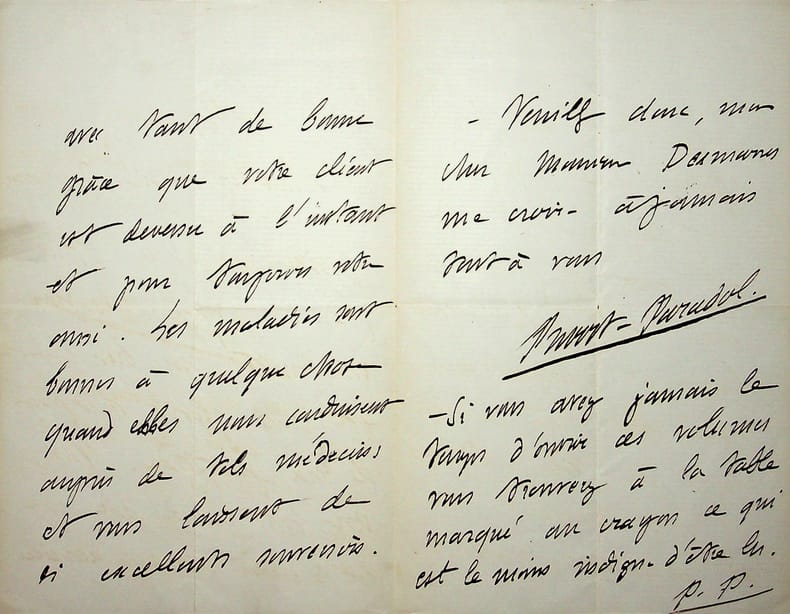 avec tant de bonne
grâce que votre client
est devenu à l'instant
et pour toujours votre
ami. Les maladies sont
bonnes à quelque chose
quand elles nous conduisent
auprès de tels médecins
et vous laissent de
si excellents souvenirs.
- Veuillez donc, mon
cher Monsieur Desmarres
me croire à jamais
tout à vous
Prévost-Paradol.
- Si vous avez jamais le
temps d'ouvrir ces volumes
vous trouverez à la table
marqué au crayon ce qui
est le moins indigne d'être lu.
P. P.